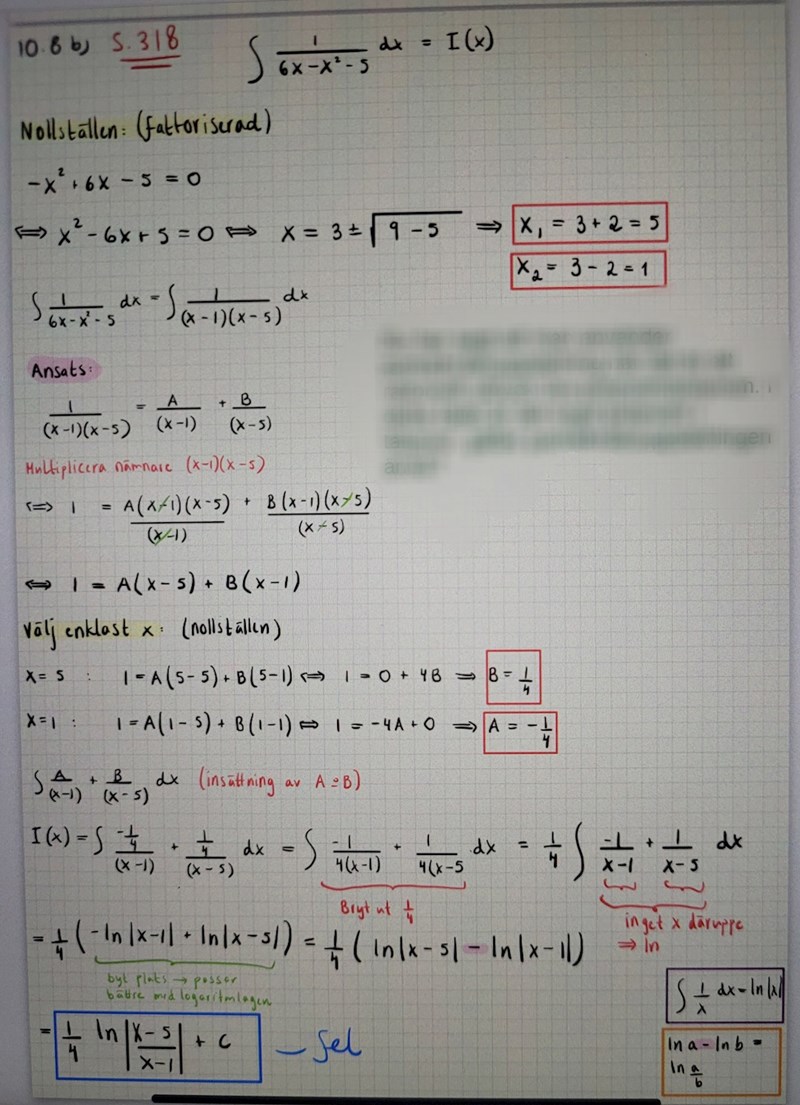 10.8 b) S. 318 ∫ 1/(6x-x²-5) dx = I(x)
Nollställen: (faktoriserad)
-x² + 6x - 5 = 0
⟺ x² - 6x + 5 = 0 ⟺ x = 3 ± √(9 - 5) ⟹ x₁ = 3 + 2 = 5
x₂ = 3 - 2 = 1
∫ 1/(6x-x²-5) dx = ∫ 1/((x-1)(x-5)) dx
Ansats:
1/((x-1)(x-5)) = A/(x-1) + B/(x-5)
Multiplicera nämnare (x-1)(x-5)
⟺ 1 = A(x-1)(x-5)/(x-1) + B(x-1)(x-5)/(x-5)
⟺ 1 = A(x-5) + B(x-1)
Välj enklast x: (nollställen)
x = 5 : 1 = A(5-5) + B(5-1) ⟺ 1 = 0 + 4B ⟹ B = 1/4
x = 1 : 1 = A(1-5) + B(1-1) ⟺ 1 = -4A + 0 ⟹ A = -1/4
∫ A/(x-1) + B/(x-5) dx (insättning av A o B)
I(x) = ∫ (-1/4)/(x-1) + (1/4)/(x-5) dx = ∫ -1/(4(x-1)) + 1/(4(x-5) dx = 1/4 ∫ -1/(x-1) + 1/(x-5) dx
Bryt ut 1/4
inget x däruppe
⟹ ln
= 1/4 (-ln|x-1| + ln|x-5|) = 1/4 (ln|x-5| - ln|x-1|)
byt plats → passar
bättre med logaritmlagen
∫ 1/x dx = ln|x|
= 1/4 ln|(x-5)/(x-1)| + C — fel
ln a - ln b =
ln a/b